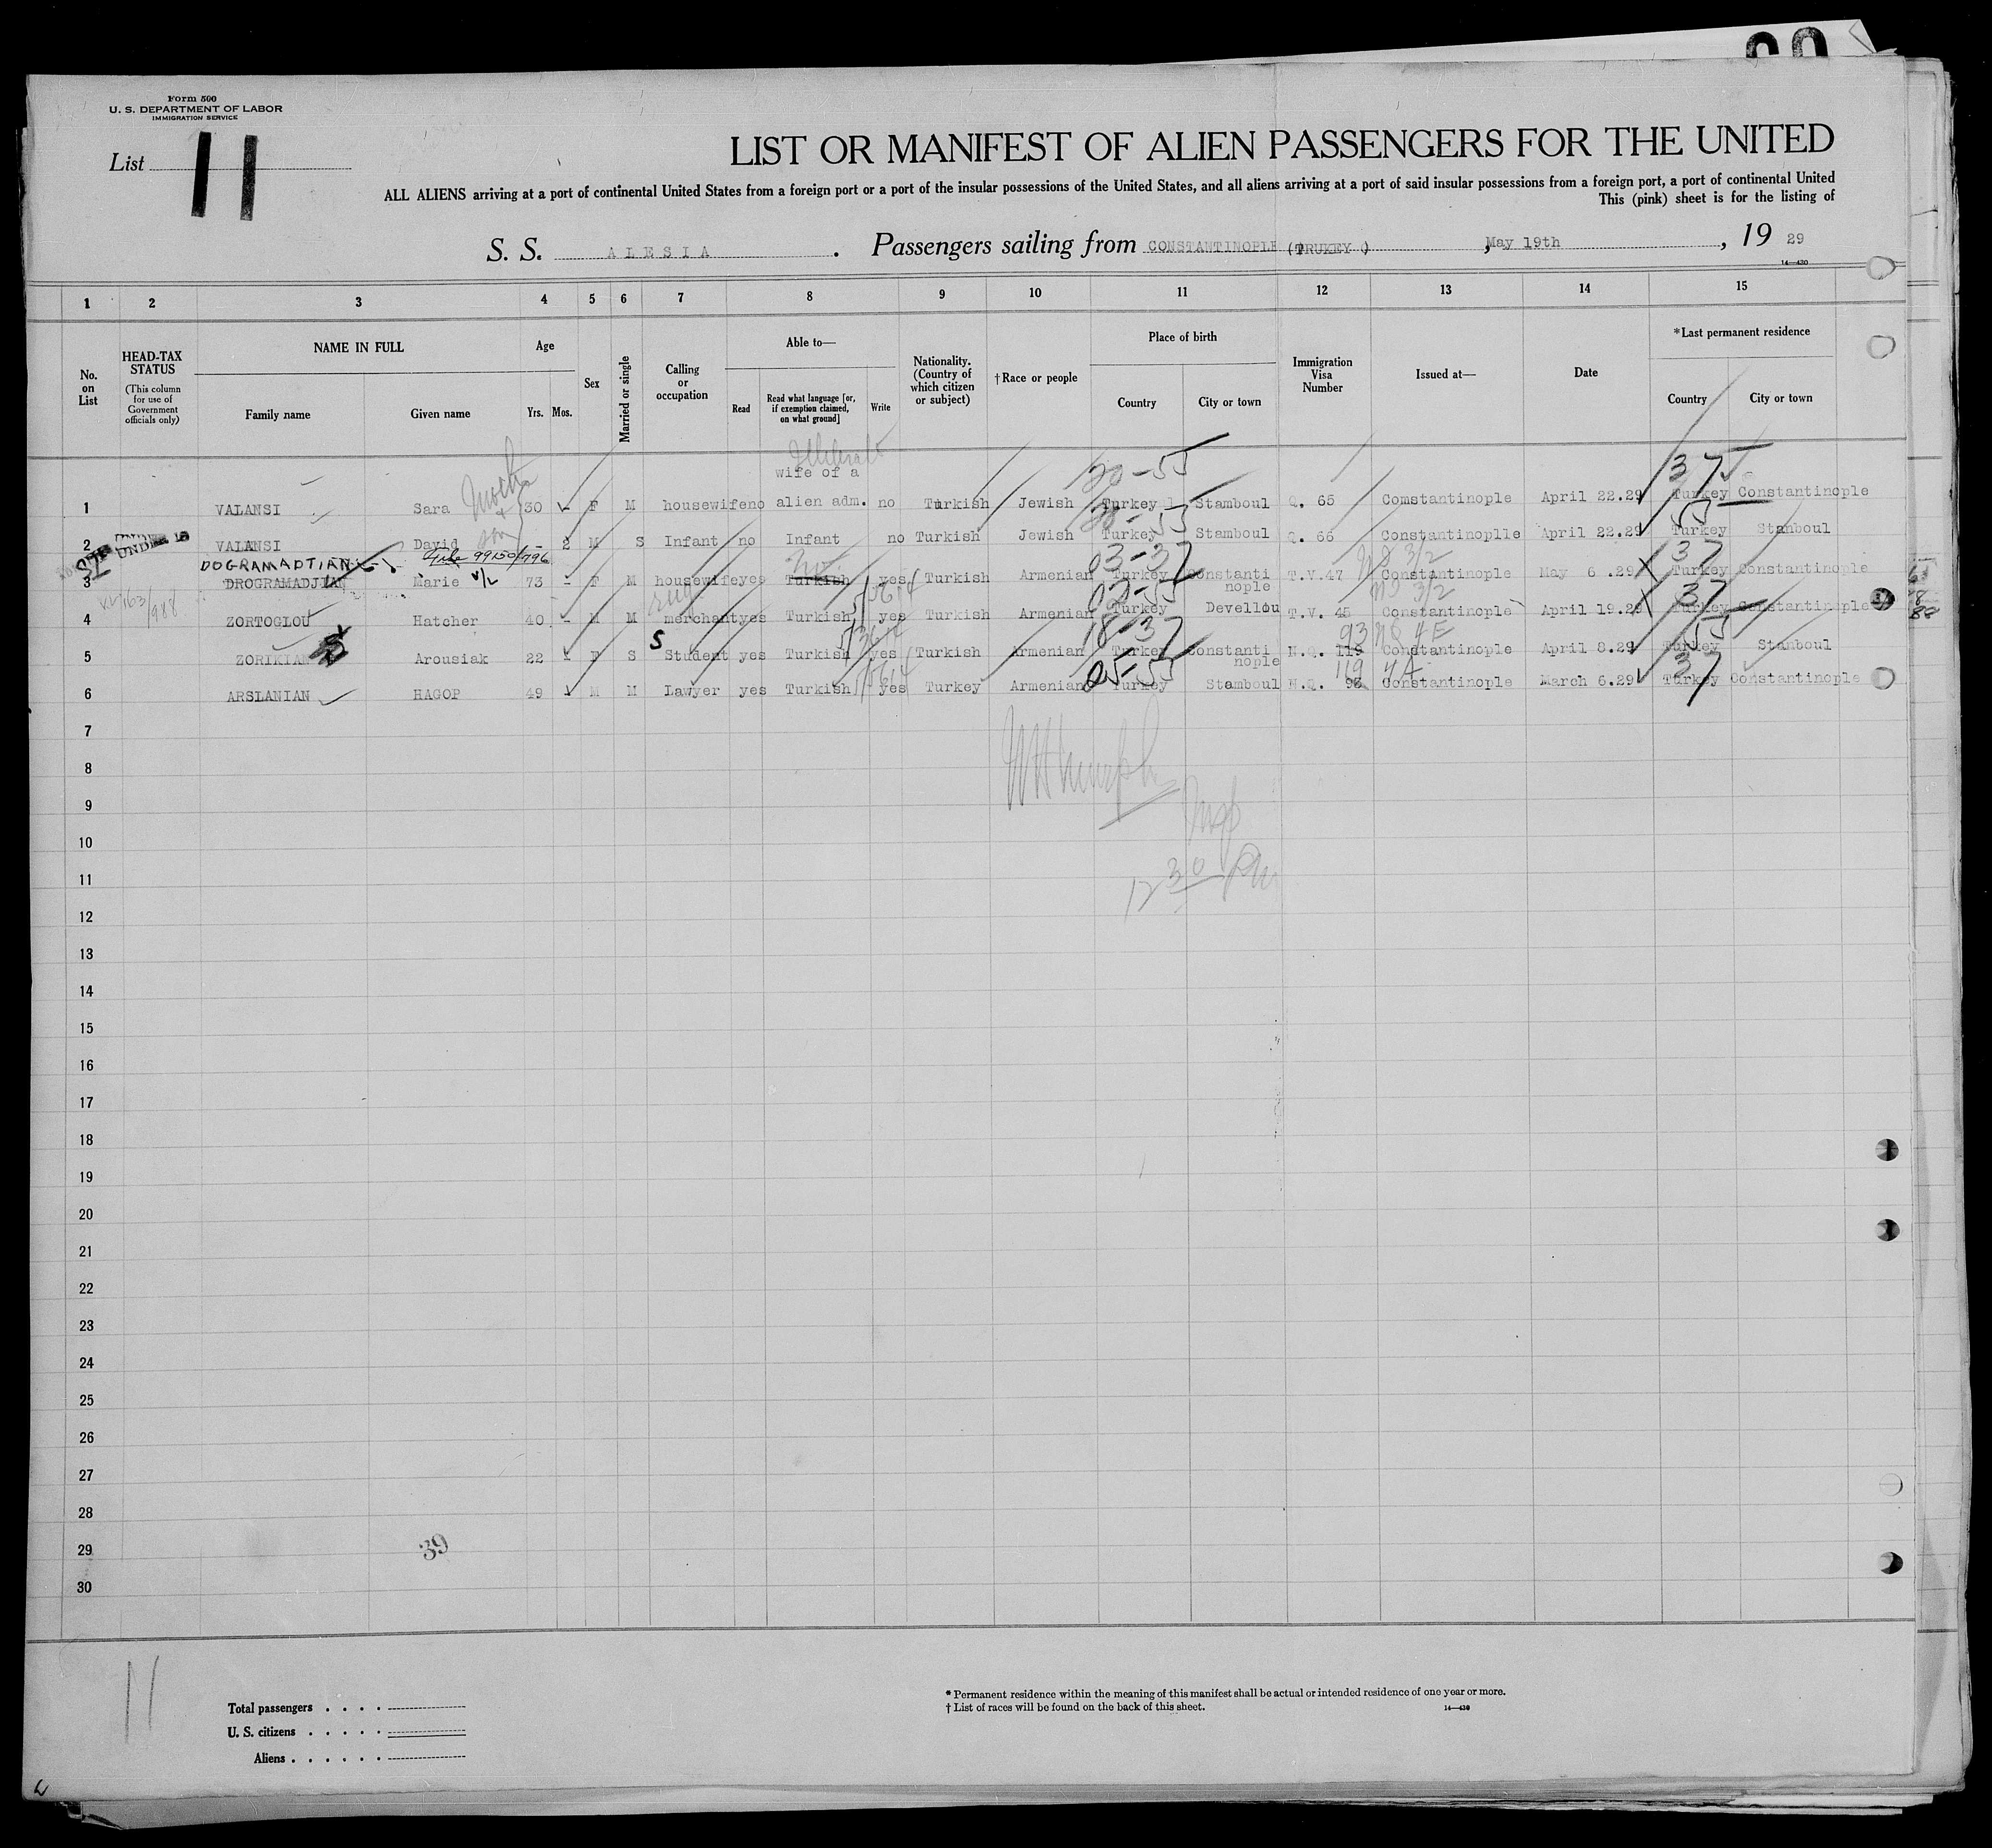 Form 500
U. S. DEPARTMENT OF LABOR
IMMIGRATION SERVICE
List 11
LIST OR MANIFEST OF ALIEN PASSENGERS FOR THE UNITED
ALL ALIENS arriving at a port of continental United States from a foreign port or a port of the insular possessions of the United States, and all aliens arriving at a port of said insular possessions from a foreign port, a port of continental United
This (pink) sheet is for the listing of
S. S. ALESIA. Passengers sailing from CONSTANTINOPLE (TRUKEY ), May 19th, 19 29
14—430
1 2 3 4 5 6 7 8 9 10 11 12 13 14 15
No. on List
HEAD-TAX STATUS
(This column for use of Government officials only)
NAME IN FULL
Family name Given name
Age
Yrs. Mos.
Sex
Married or single
Calling or occupation
Able to—
Read Read what language [or, if exemption claimed, on what ground] Write
Nationality. (Country of which citizen or subject)
†Race or people
Place of birth
Country City or town
Immigration Visa Number
Issued at—
Date
*Last permanent residence
Country City or town
wife of a
20-55 37
1 VALANSI Sara 30 - F M housewife no alien adm. no Turkish Jewish Turkey Stamboul Q. 65 Comstantinople April 22.29 Turkey Constantinople
55
UNDER 16
2 VALANSI David - 2 M S Infant no Infant no Turkish Jewish Turkey Stamboul Q. 66 Constantinoplle April 22.29 Turkey Stanboul
DOGRAMADTIAN 99150/796 no 03-37 NQ 3/2 37
3 DROGRAMADJIAN Marie V/L 73 - F M housewife yes Turkish yes Turkish Armenian Turkey Constanti nople T.V.47 Constantinople May 6 .29 Turkey Constantinople
02-55 3/2 37
4 ZORTOGLOU Hatcher 40 - M M merchant yes Turkish yes Turkish Armenian Turkey Devellou T.V. 45 Constantinople April 19.29 Turkey Constantinople
S 18-37 93 NQ 4E 55
5 ZORIKIAN Arousiak 22 - F S Student yes Turkish yes Turkish Armenian Turkey Constanti nople N.Q. 119 Constantinople April 8.29 Turkey Stanboul
05-55 119 4A 37
6 ARSLANIAN HAGOP 49 M M Lawyer yes Turkish yes Turkey Armenian Turkey Stamboul N.Q. 93 Constantinople March 6.29 Turkey Constantinople
7
8
9
10
11
12
13
14
15
16
17
18
19
20
21
22
23
24
25
26
27
28
29 39
30
11
Total passengers
U. S. citizens
Aliens
* Permanent residence within the meaning of this manifest shall be actual or intended residence of one year or more.
† List of races will be found on the back of this sheet.
14—430